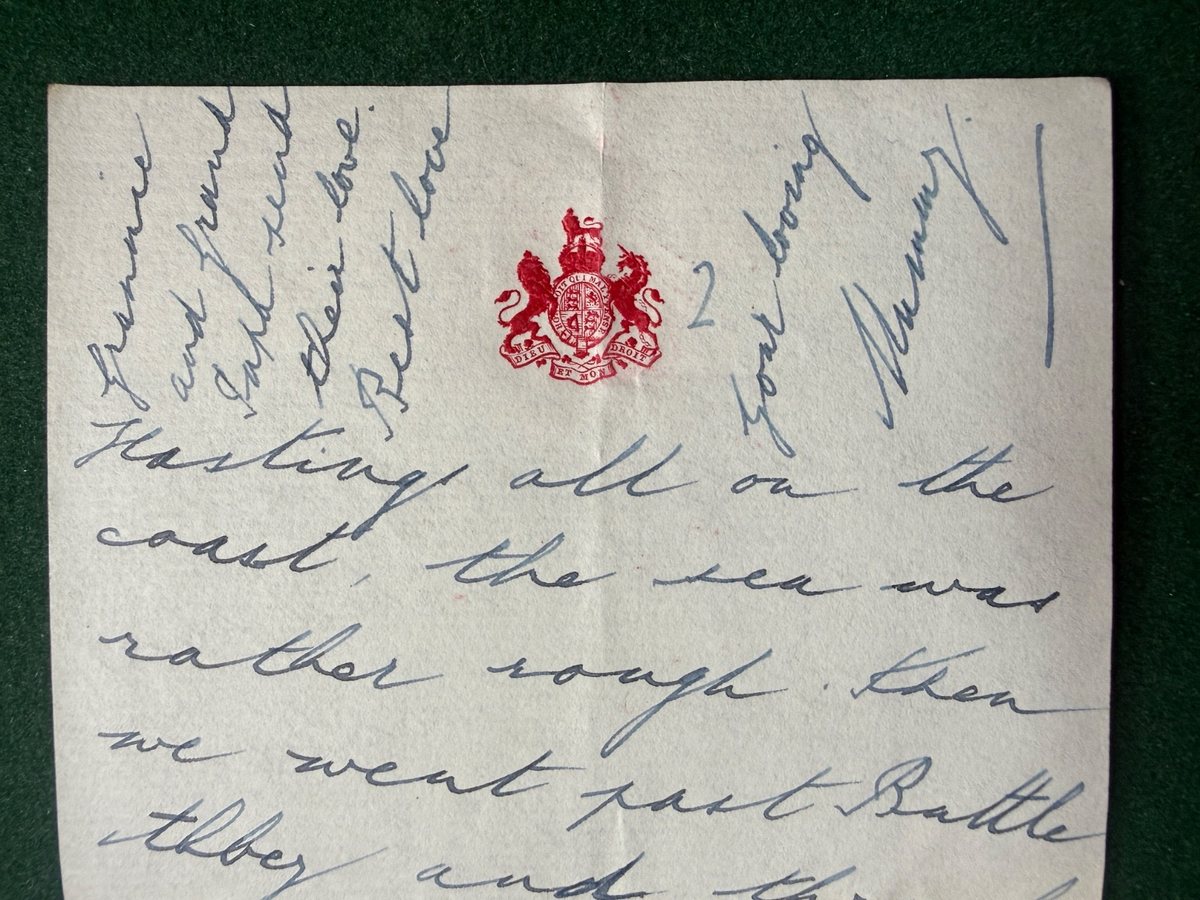 Grannie
and Grand
Papa send
their love.
Best love
Your loving
Mummy.
2
DIEU
ET MON
DROIT
Hastings all on the
coast, the sea was
rather rough. Then
we went past Battle
Abbey and